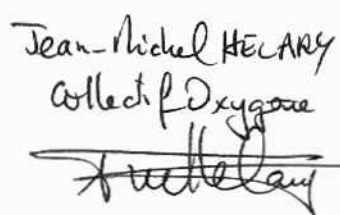 Jean-Michel HELARY
Collectif Oxygène